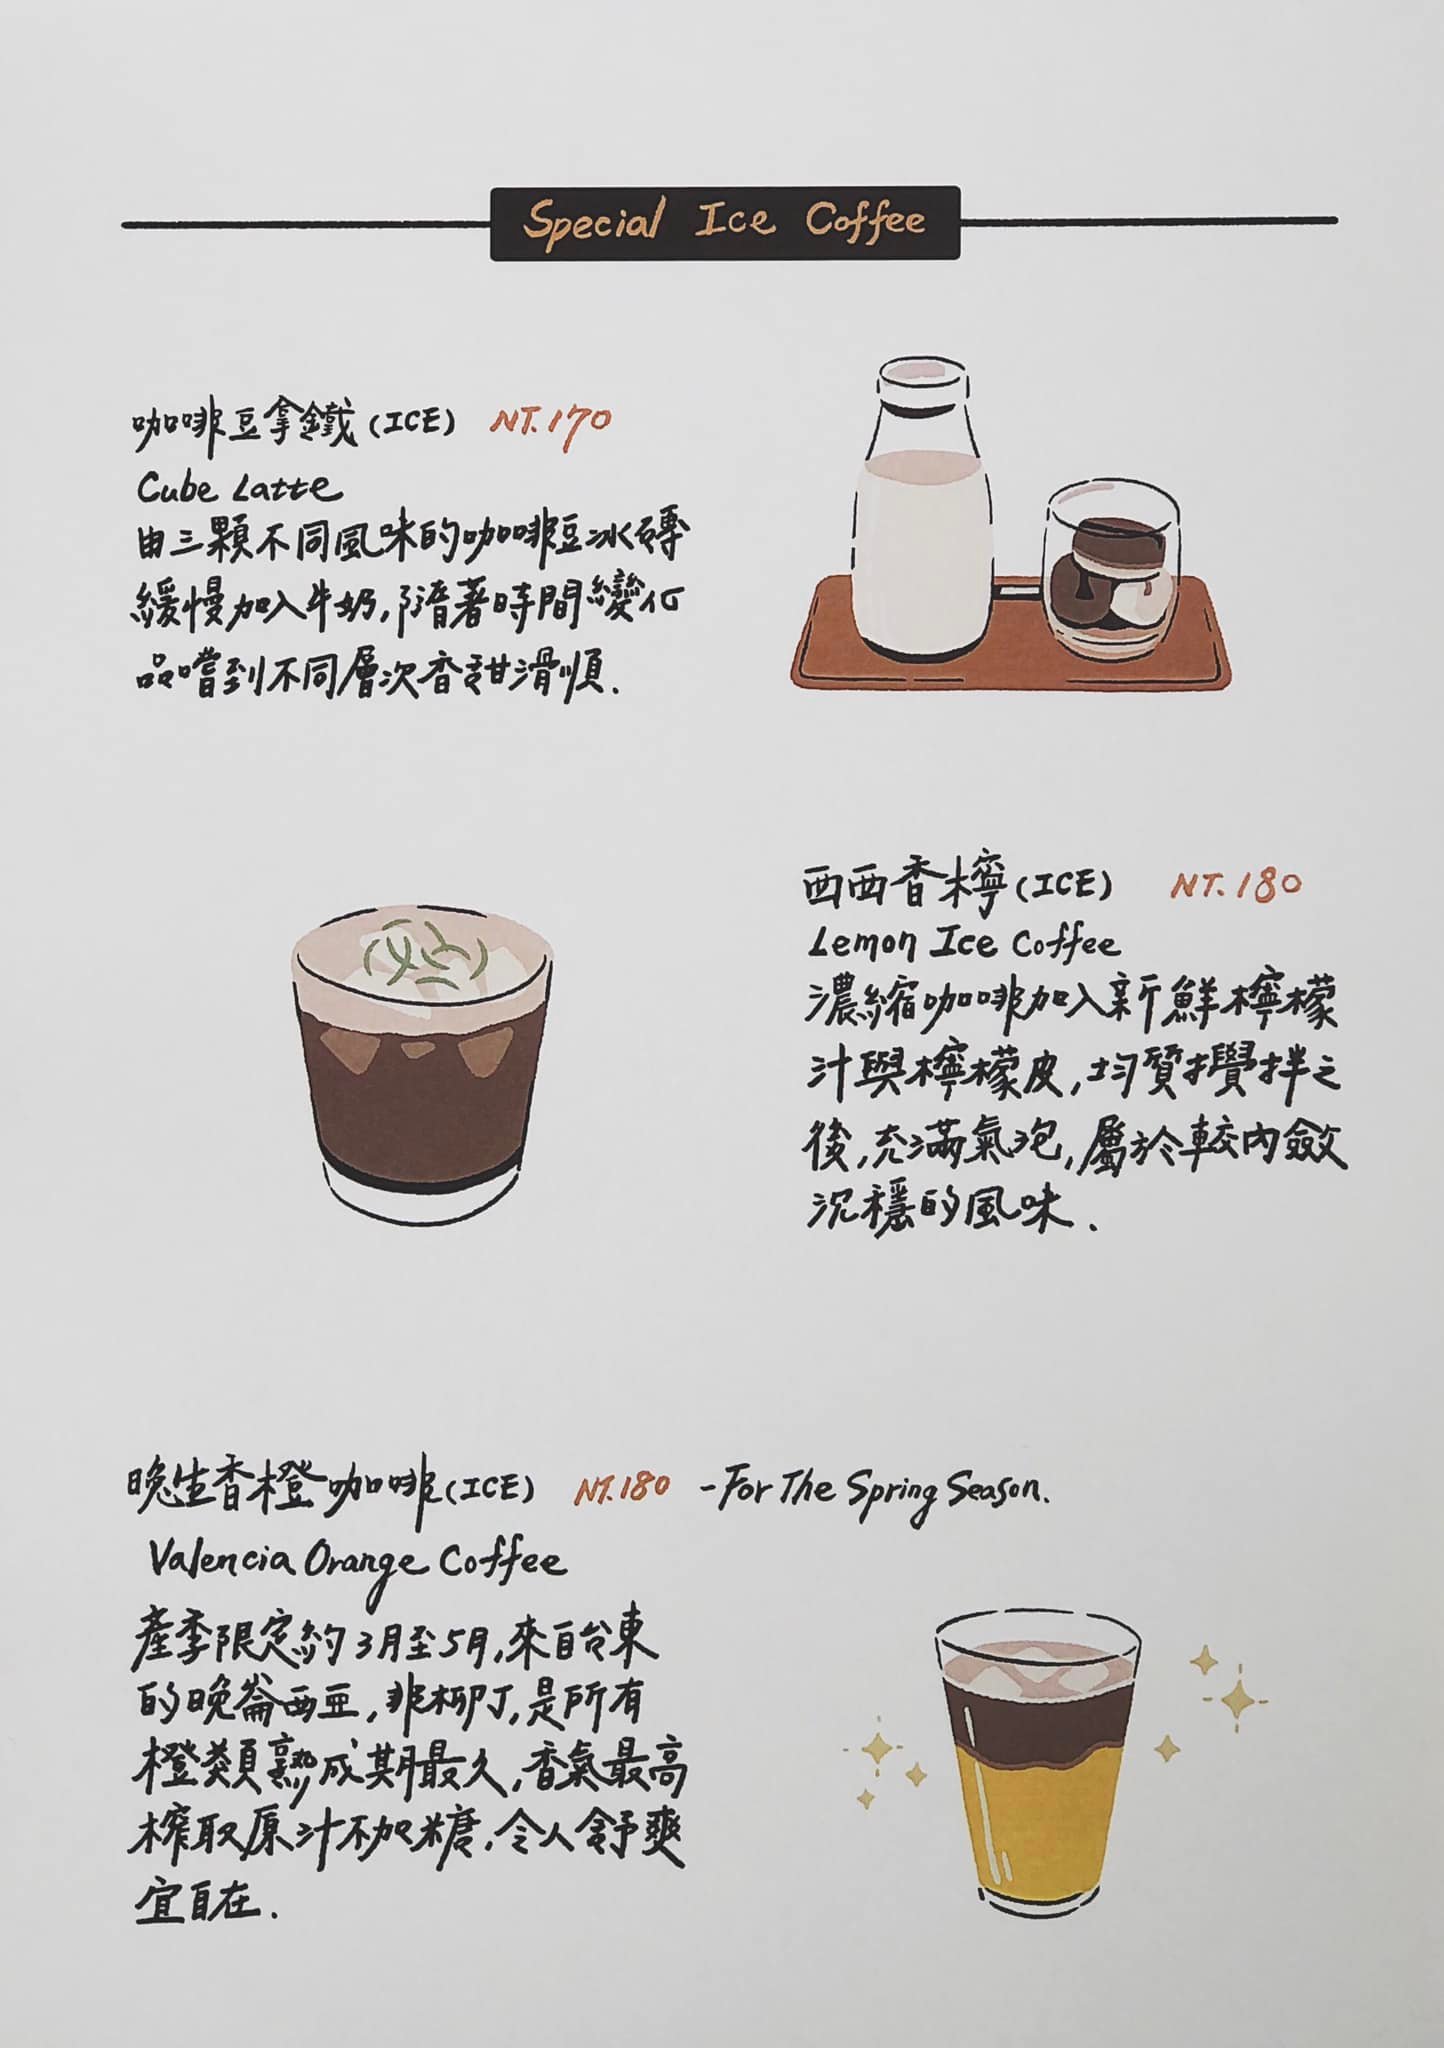 Special Ice Coffee
咖啡豆拿鐵(ICE) NT.170
Cube Latte
由三顆不同風味的咖啡豆冰磚
緩慢加入牛奶,隨著時間變化
品嚐到不同層次香甜滑順.
西西香檸(ICE) NT.180
Lemon Ice Coffee
濃縮咖啡加入新鮮檸檬
汁與檸檬皮,均質攪拌之
後,充滿氣泡,屬於較內斂
沉穩的風味.
晚生香橙咖啡(ICE) NT.180 -For The Spring Season.
Valencia Orange Coffee
產季限定約3月至5月,來自台東
的晚崙西亞,非柳丁,是所有
橙類熟成期最久,香氣最高
榨取原汁不加糖,令人舒爽
宜自在.